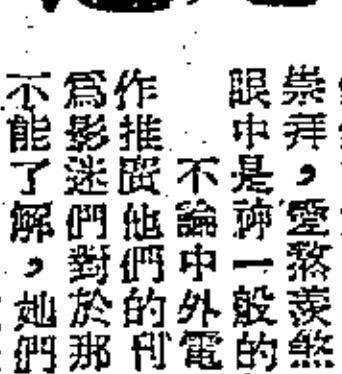 崇拜，愛煞羨煞
眼中是神一般的
不論中外電
作推廣他們的刊
爲影迷們對於那
不能了解，她們